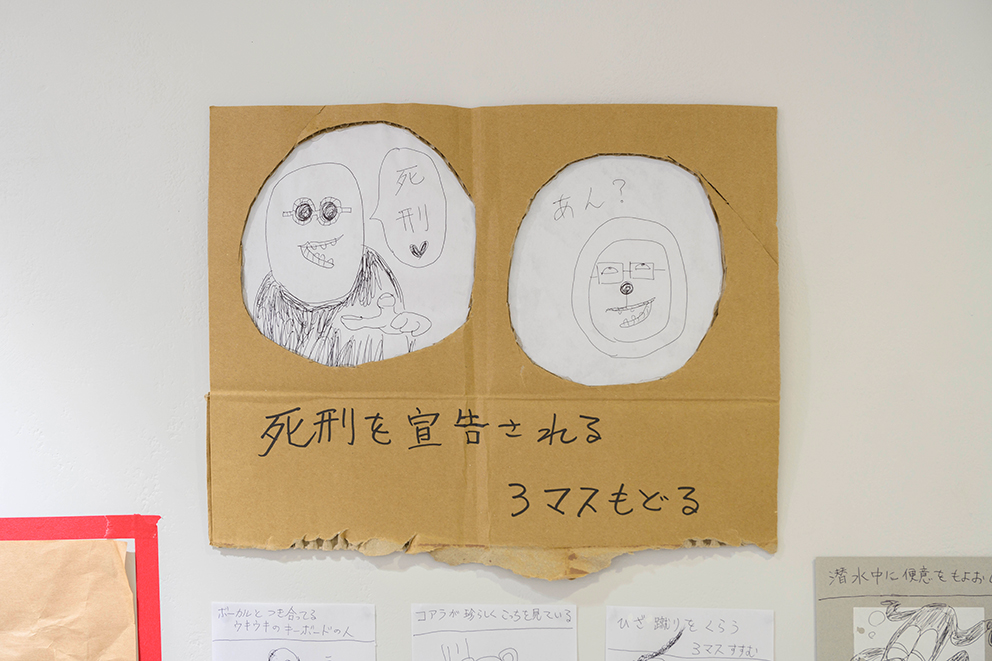 死
刑
あん?
死刑を宣告される
3マスもどる
ボーカルとつき合ってる
ウキウキのキーボードの人
コアラが珍らしくこっちを見ている
ひざ蹴りをくらう
3マスすすむ
潜水中に便意をもよお